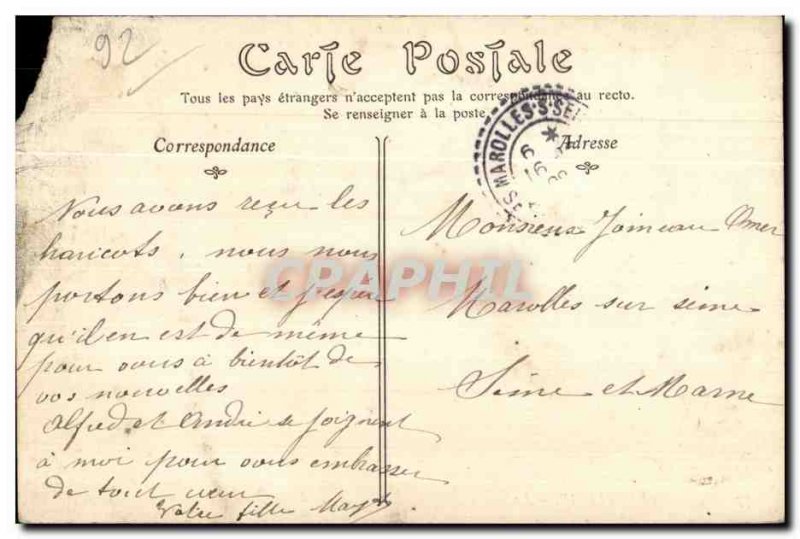 92
Carte Postale
Tous les pays étrangers n'acceptent pas la correspondance au recto.
Se renseigner à la poste.
Correspondance
Adresse
MAROLLES-S-SEI
6
16
Nous avons reçu les
haricots, nous nous
portons bien et j'espère
qu'il en est de même
pour vous à bientôt de
vos nouvelles
Alfred et André se joignent
à moi pour vous embrasser
de tout cœur
Votre fille
Monsieur Joineau
Marolles sur seine
Seine et Marne
CPAPHIL